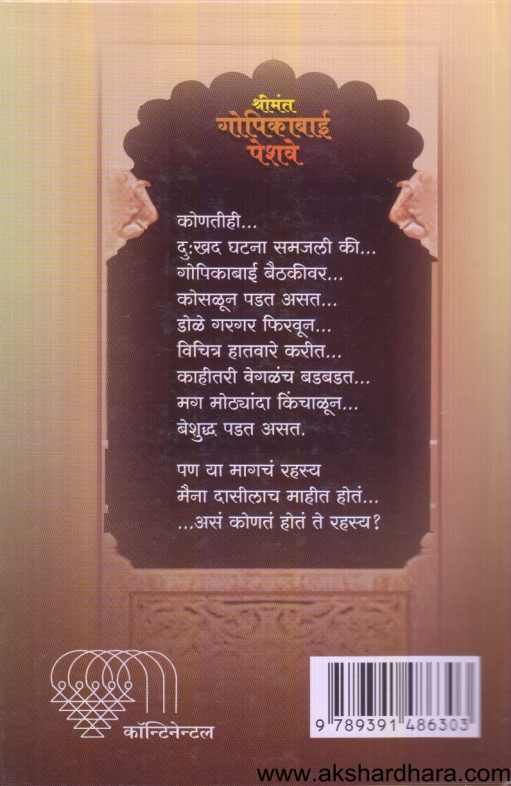 श्रीमंत
गोपिकाबाई
पेशवे
कोणतीही...
दुःखद घटना समजली की...
गोपिकाबाई बैठकीवर...
कोसळून पडत असत...
डोळे गरगर फिरवून...
विचित्र हातवारे करीत...
काहीतरी वेगळंच बडबडत...
मग मोठ्यांदा किंचाळून...
बेशुद्ध पडत असत.
पण या मागचं रहस्य
मैना दासीलाच माहीत होतं...
...असं कोणतं होतं ते रहस्य?
कॉन्टिनेन्टल
9 789391 486303
www.akshardhara.com